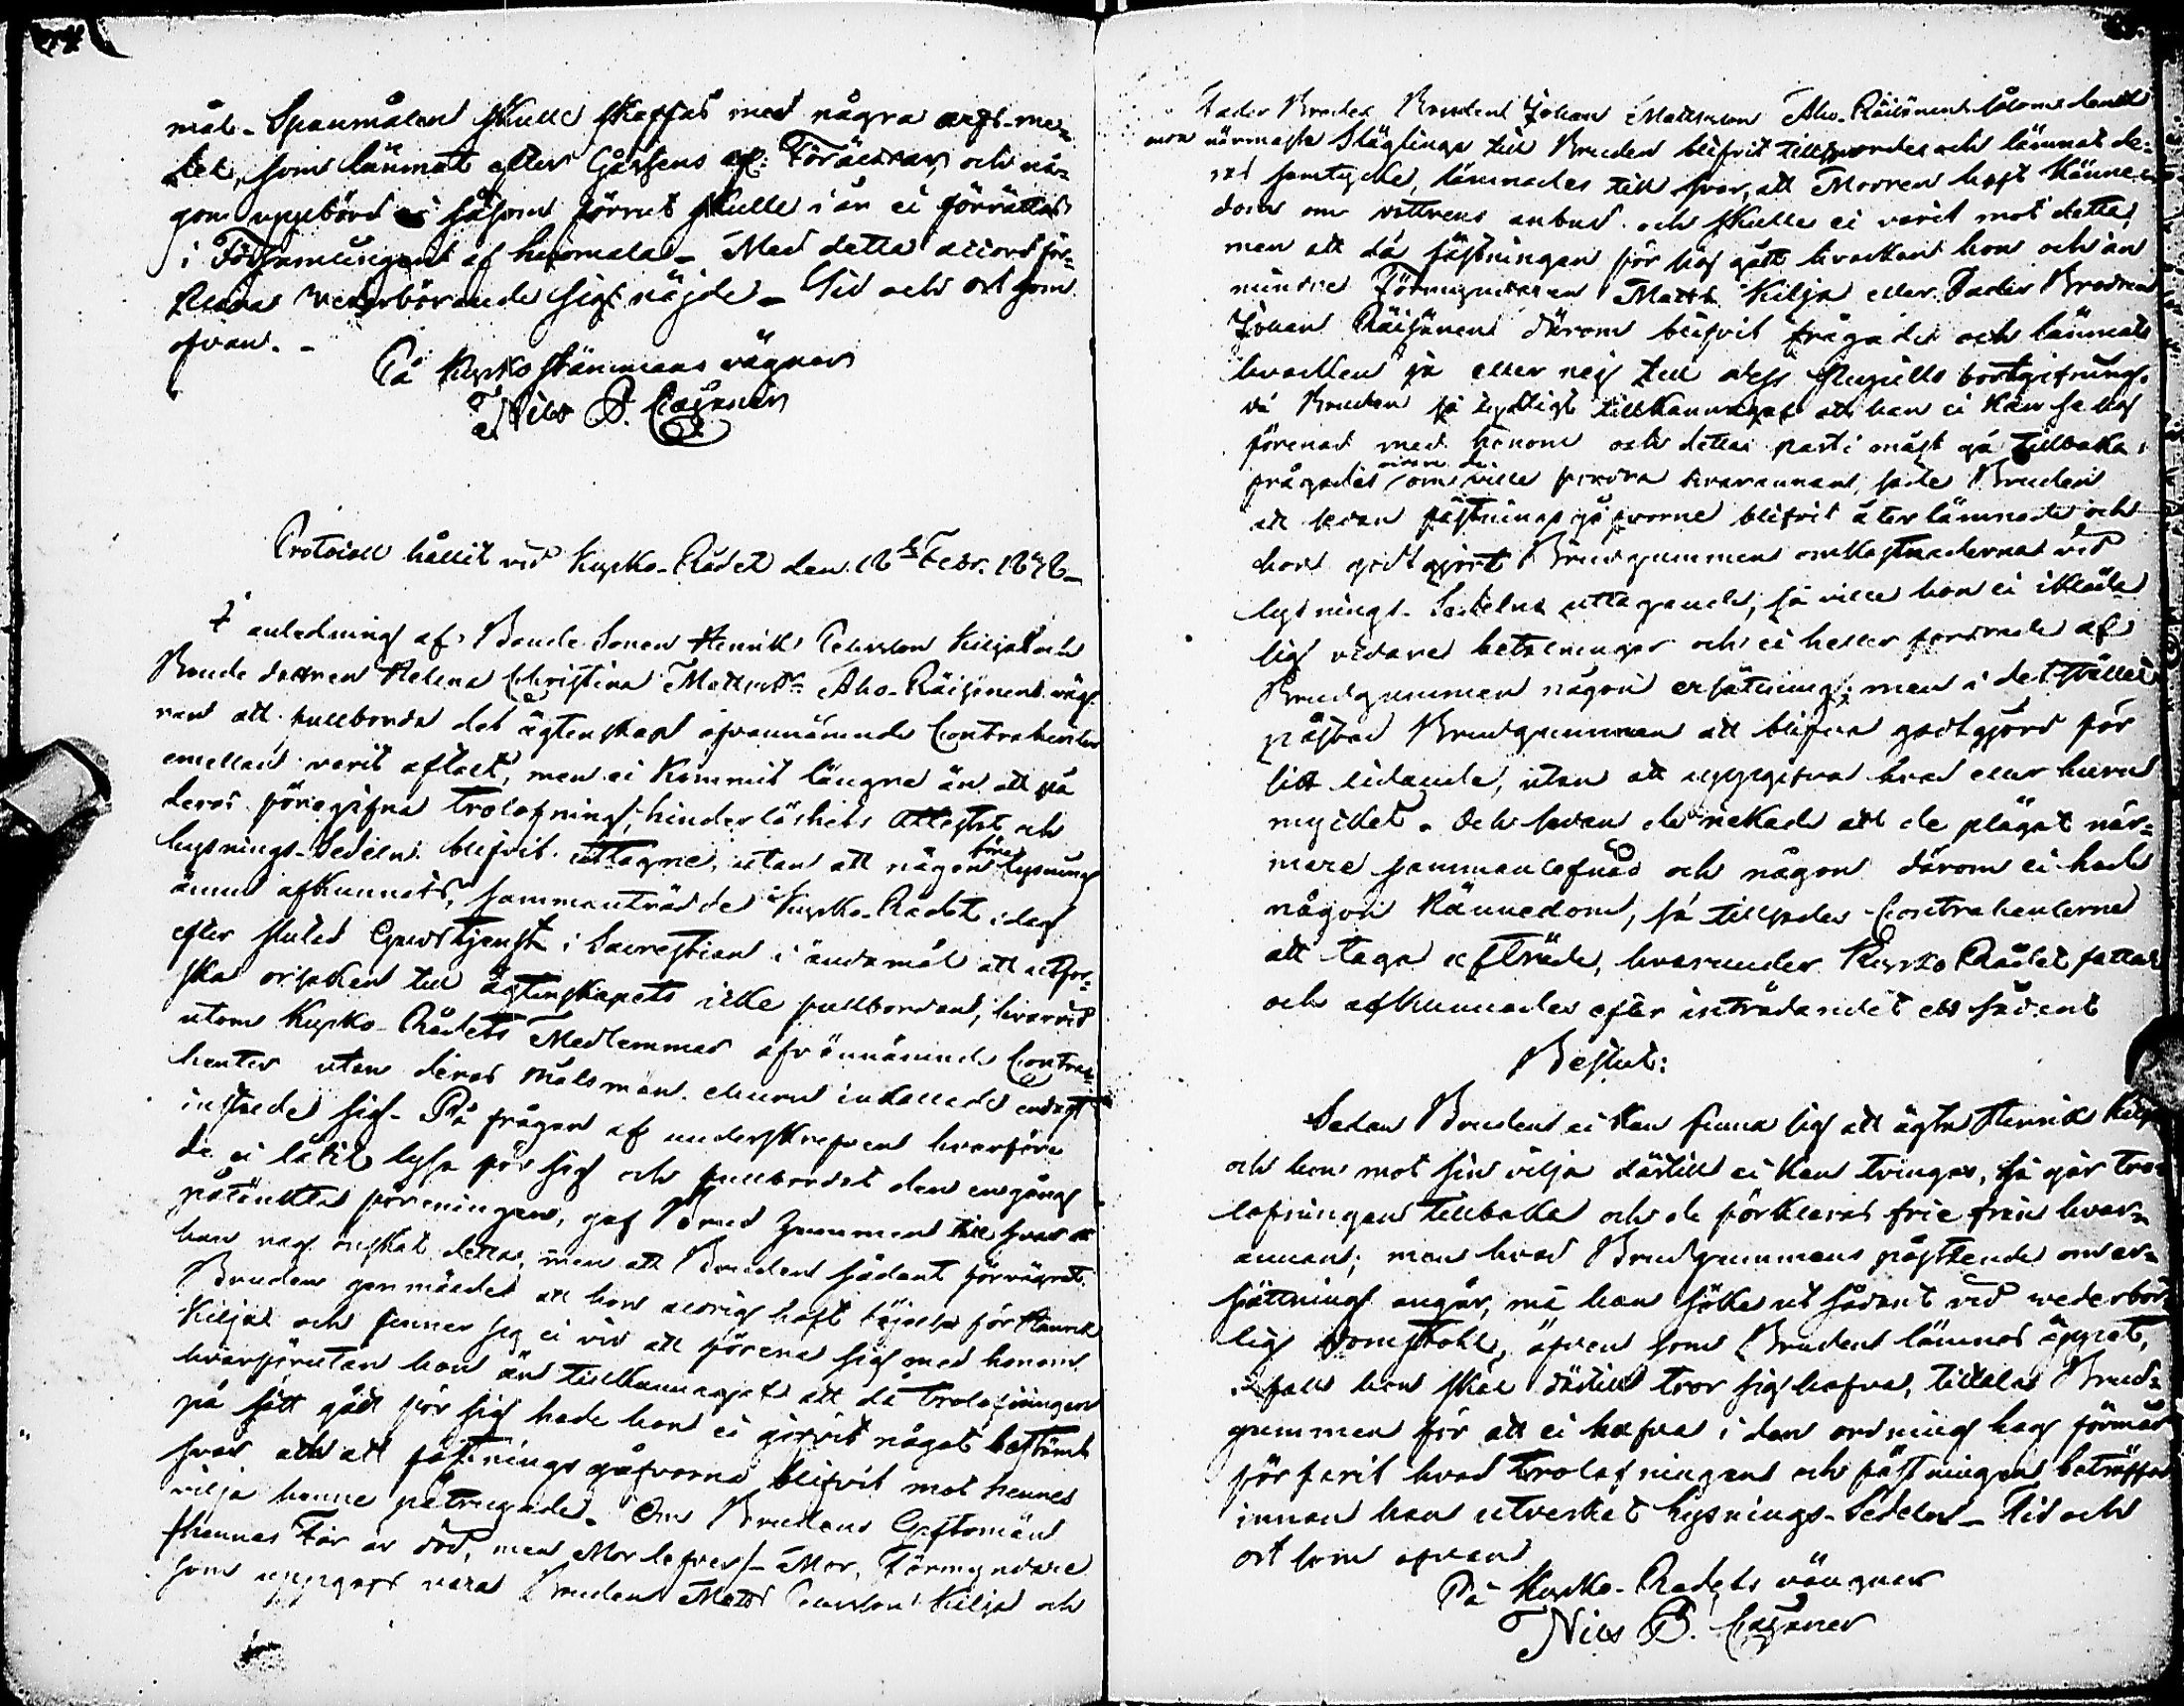 mål. Spanmålen skulle skaffas med några arfs me-
del, som lämnats efter Gåssens afl: Föräldrar, och nå-
gon uppbörd såsom förrut skulle i år ei förrättas
i Församlingen af heiomala. Med detta accord för-
klarar Vederbörande sig nöjde. Tid och ort som
ofvan. -
På Kyrko stämmans vägnar
Nils B.
Protocoll hållit vid Kyrko-Rådet den 18 Febr. 1838.
I anledning af Bonde Sonen Henrik Petersson Kilja och
Bonde dottren Helena Christina Mattsdr Aho-Räisänens väg-
ran att fullborda det ägtenskap ofvannämnde Contrahenter
emellan varit aftalt, men ei kommit längre än att på
deras föregifna trolofning, hinderlöshets Attester och
lysnings-Sedeln blifvit uttagne, utan att någon lysning
ännu afkunnats, sammanträdde Kyrko-Rådet i dag
efter slutad Gudstjenst i Sacrestian i ändamål att utfor-
ska orsaken till ägtenskapets icke fullbordan, hvarvid
utom Kyrko-Rådets Medlemmar ofvannämnde Contra-
henter utan deras målsmän ehuru inkallade endast
instälde sig. På frågan af underskrefven hvarföre
de ei låtit lysa för sig och fullbordat den en gång
påtänkta föreningen, gaf Brud gummen till svar att
han nog önskat detta, men att Bruden sådant förvägrat.
Bruden genmälde att hon aldrig haft tycke för Henrik
Kilja och finner sig ei vid att förena sig med honom
hvarförutan hon än tillkännagaf att då trolofningen
på sätt gått för sig hade hon ei gifvit något bestämt
svar och att fästnings gåfvorna blifvit mot hennes
vilja henne påtrugade. Om Brudens Giftomän
/hennes Far är död, men Mor lefver/ Mor, Förmyndare
som uppgafs vara Brudens Matts Petersson Kilja och
Fader Broder Brudens Johan Mattsson Aho-Räisänen såsom
närmaste Slägtingar till Bruden blifvit tillspordes och lämnat de-
ras samtycke, lämnades till svar, att Morren haft känne-
dom om dottrens anbud och skulle ei varit mot detta,
men att då fästningen för sig gått hvarken hon och än
mindre Förmyndaren Matts Kilja eller Fader Brodren
Johan Räisänen därom blifvit frågade och lämnat
hvarken ja eller nej till dess bortgifning.
då Bruden så tydligt tillkännagaf att hon ei kan se sig
förenad med honom och detta parti måst gå tillbaka,
frågades om de ville fordra hvarannan, sade Bruden
att sedan fästnings gåfvorne blifvit återlämnade och
hon godtgjort Brudgummen omkostnaderna vid
lysnings-Sedelns uttagande, så ville hon ei ikläda
sig vidare betalningar och ei heller fordrade af
Brudgummen någon ersättning; men i det stället
påstod Brudgummen att blifva godtgjord för
sitt lidande, utan att uppgifva hvad eller huru
mycket. Och sedan de nekade att de plägat när-
mare sammanlefnad och någon därom ei hade
någon kännedom, så tillsades Contrahenterna
att taga afträde, hvarunder Kyrko Rådet fattade
och afkunnades efter inträdandet ett sådant
Beslut:
Sedan Bruden ei kan finna sig att ägta Henrik Kilja
och hon mot sin vilja därtill ei kan tvingas, så går tro-
lofningen tillbaka och de förklaras frie från hvar-
annan; men hvad Brudgummens påstående om er-
sättning angår, må han söka ut sådant vid vederbör-
lig domstohl, äfven som Bruden lämnas öppet,
ifall hon skäl därtill tror sig hafva, tilltala Brud-
gummen för att ei hafva i den ordning lag förmår
förfarit hvad trolofningen och fästningen beträffar
innan han utverkat lysnings-Sedeln. Tid och
ort som ofvan
På Kyrko-Rådets vägnar
Nils B.